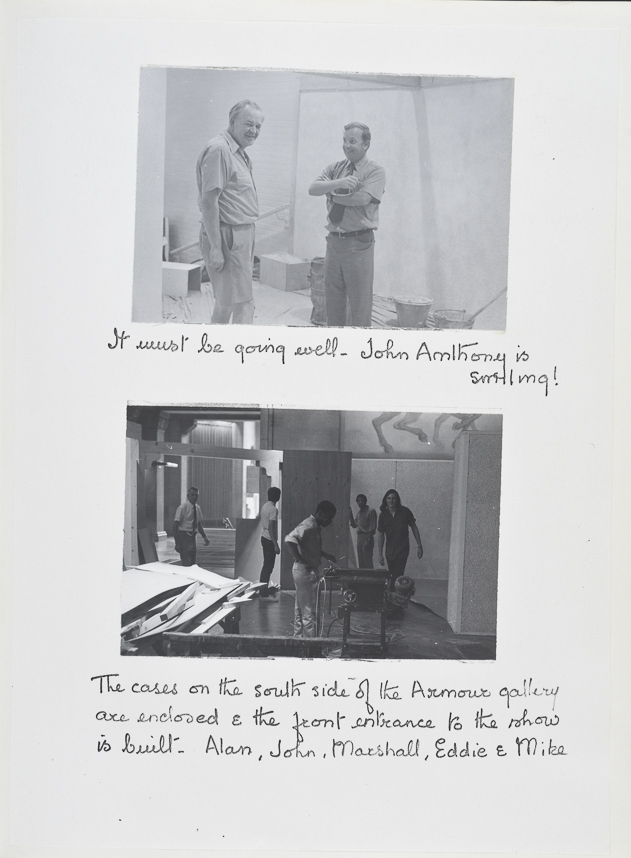 It must be going well - John Anthony is
smiling!
The cases on the south side of the Armour gallery
are enclosed & the front entrance to the show
is built - Alan, John, Marshall, Eddie & Mike